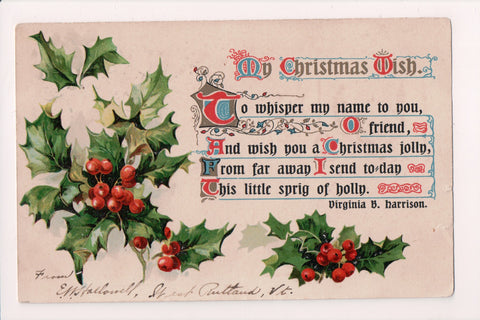 My Christmas Wish.
To whisper my name to you,
O friend,
And wish you a Christmas jolly,
From far away I send to-day
This little sprig of holly.
Virginia B. Harrison.
From
Rutland, Vt.